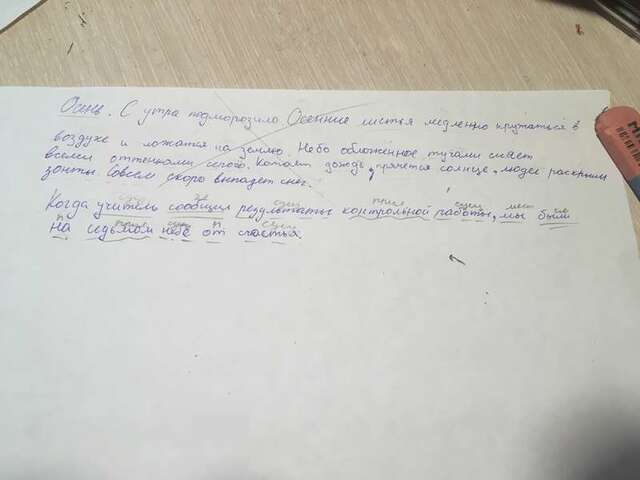 Осень. С утра подморозило. Осенние листья медленно кружаться в
воздухе и ложатся на землю. Небо обложенное тучами сияет
всеми оттенками серого. Капает дождь, прячется солнце, люди раскрыли
зонты. Совсем скоро выпадет снег.
Когда учитель сообщил результаты контрольной работы, мы были
на седьмом небе от счастья.